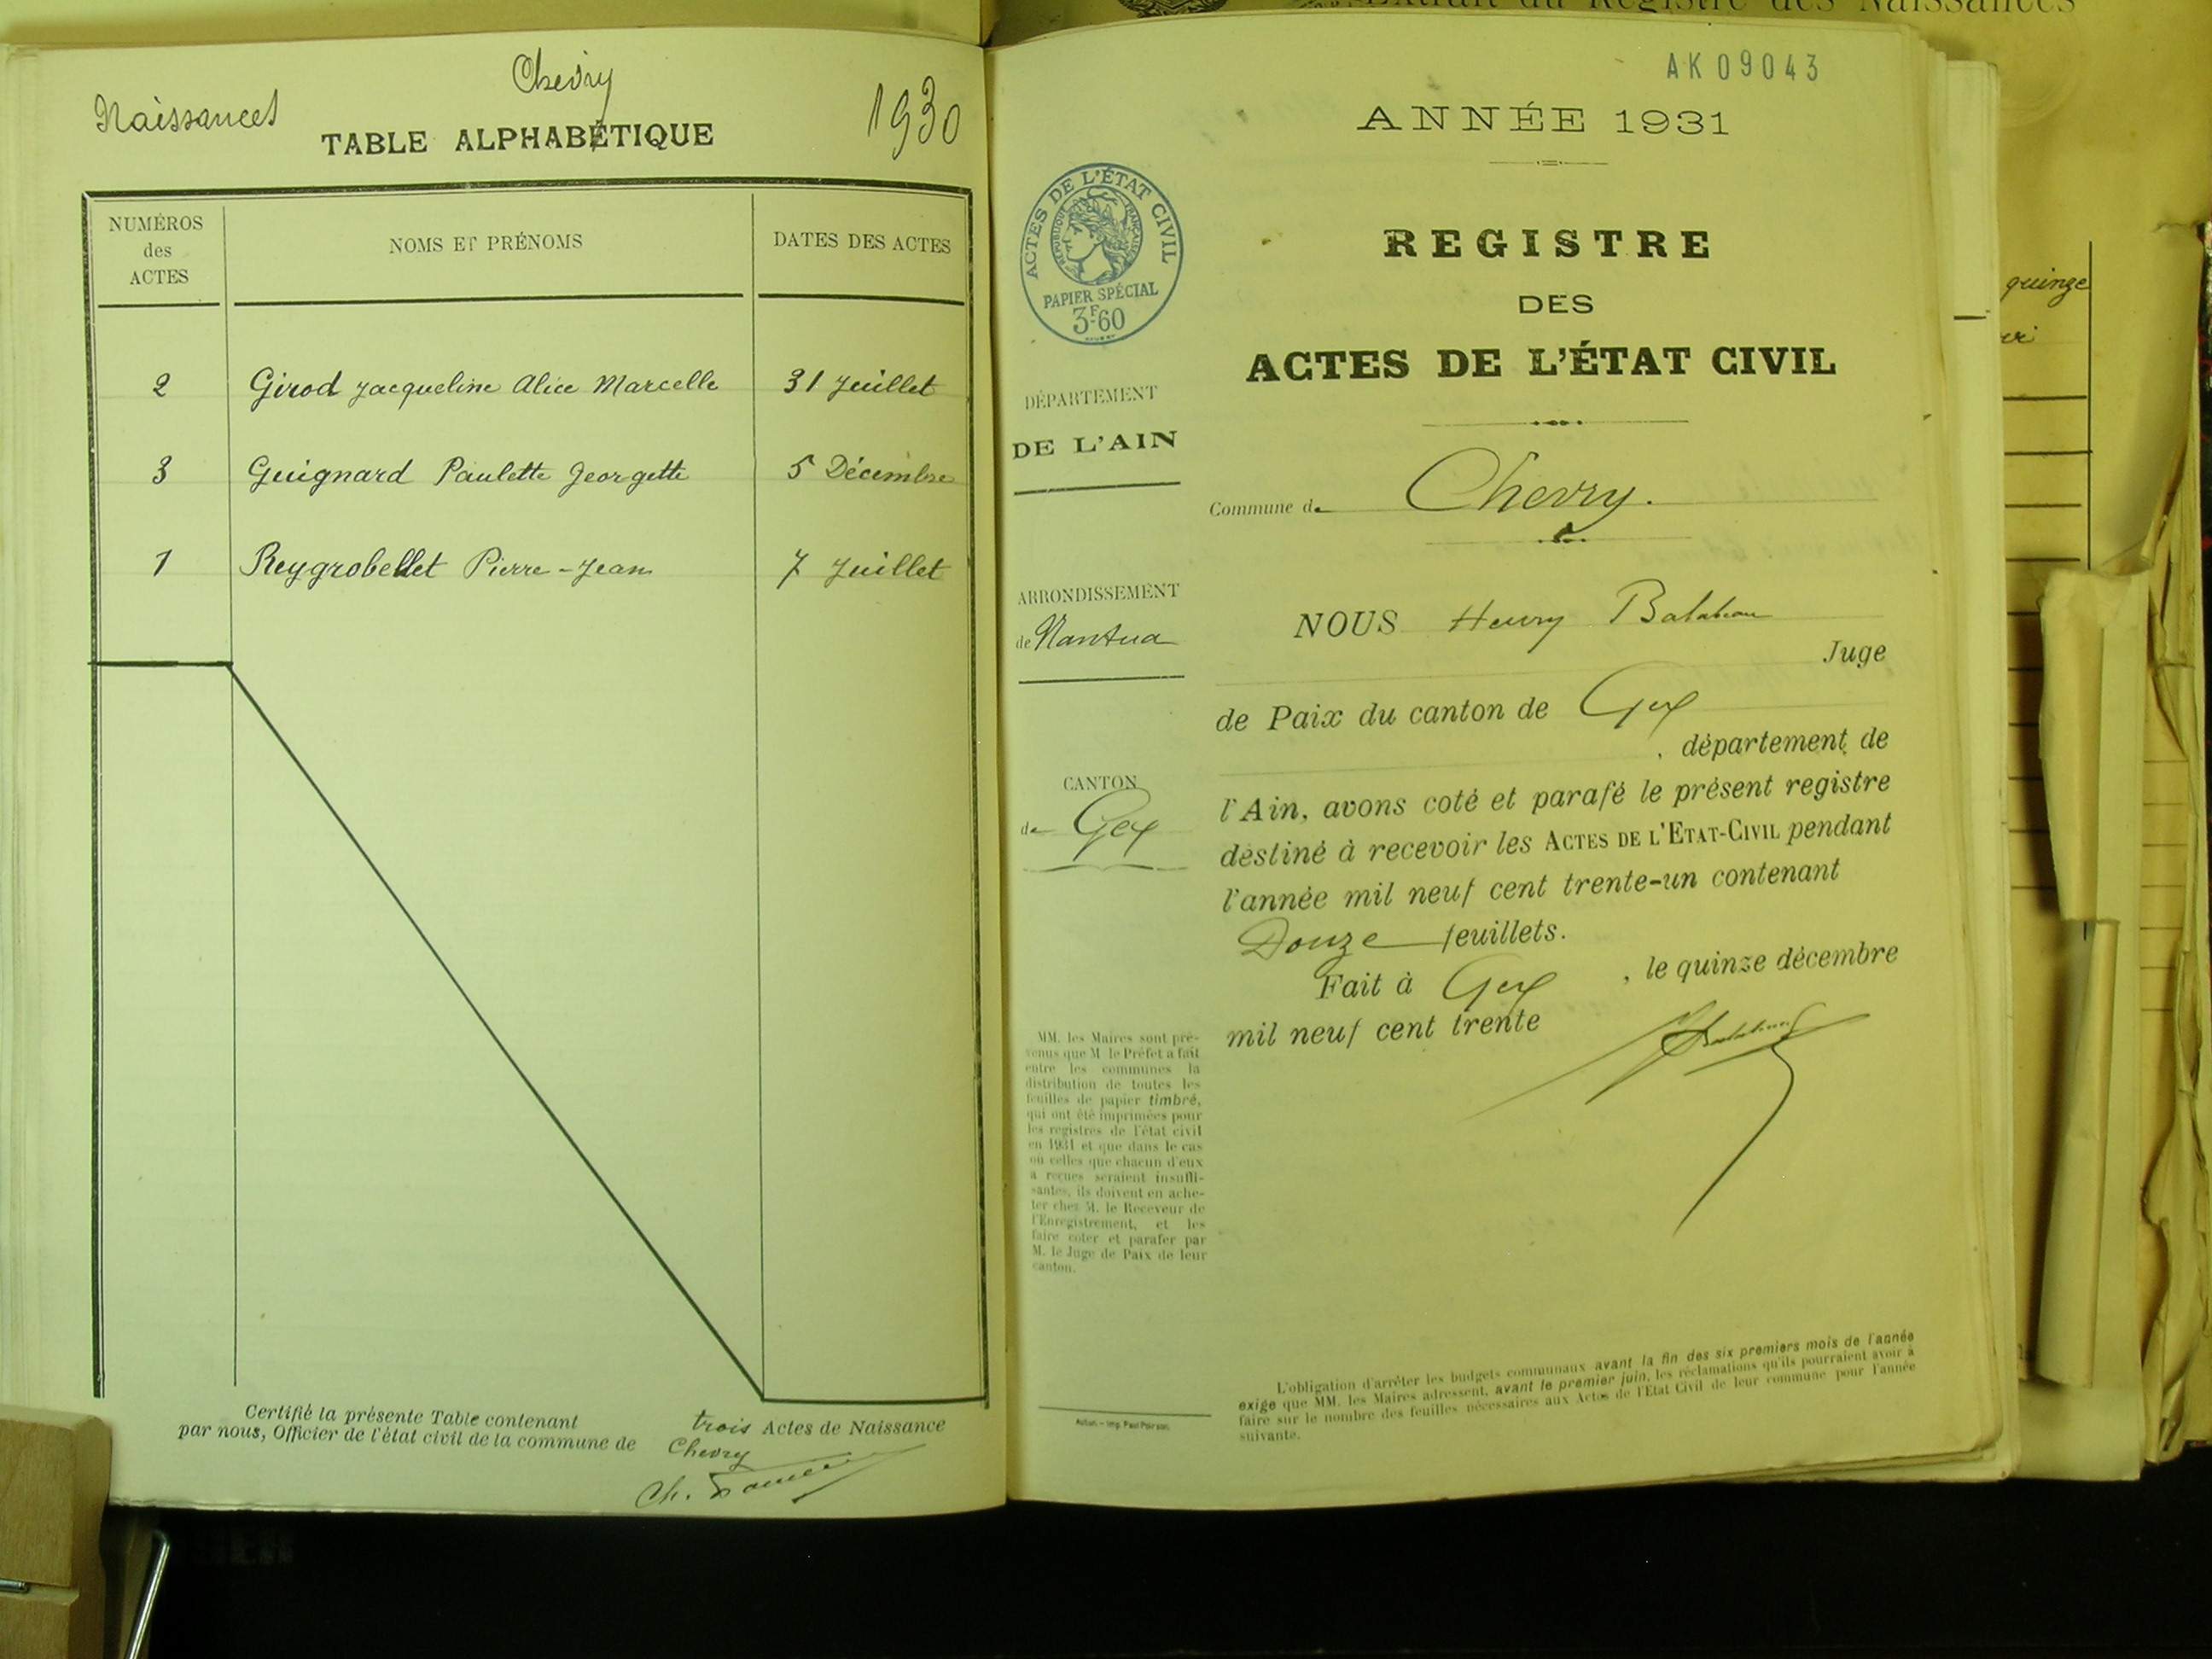 Extrait du Registre des Naissances
Chevry
Naissances
1930
TABLE ALPHABÉTIQUE
NUMÉROS
des
ACTES
NOMS ET PRÉNOMS
DATES DES ACTES
2 Girod Jacqueline Alice Marcelle 31 Juillet
3 Guignard Paulette Georgette 5 Décembre
1 Reygrobellet Pierre-Jean 7 Juillet
Certifié la présente Table contenant trois Actes de Naissance
par nous, Officier de l'état civil de la commune de Chevry
Ch.
AK 09043
ANNÉE 1931
ACTES DE L'ÉTAT CIVIL
RÉPUBLIQUE FRANÇAISE
PAPIER SPÉCIAL
3F60
REGISTRE
DES
ACTES DE L'ÉTAT CIVIL
DÉPARTEMENT
DE L'AIN
Commune de Chevry.
ARRONDISSEMENT
de Nantua
CANTON
de Gex
NOUS Henry
Juge
de Paix du canton de Gex
, département de
l'Ain, avons coté et parafé le présent registre
destiné à recevoir les ACTES DE L'ETAT-CIVIL pendant
l'année mil neuf cent trente-un contenant
Douze feuillets.
Fait à Gex , le quinze décembre
mil neuf cent trente
MM. les Maires sont pré-
venus que M le Préfet a fait
entre les communes la
distribution de toutes les
feuilles de papier timbré,
qui ont été imprimées pour
les registres de l'état civil
en 1931 et que dans le cas
où celles que chacun d'eux
a reçues seraient insuffi-
santes, ils doivent en ache-
ter chez M. le Receveur de
l'Enregistrement, et les
faire coter et parafer par
M. le Juge de Paix de leur
canton.
L'obligation d'arrêter les budgets communaux avant la fin des six premiers mois de l'année
exige que MM. les Maires adressent, avant le premier juin, les réclamations qu'ils pourraient avoir à
faire sur le nombre des feuilles nécessaires aux Actes de l'Etat Civil de leur commune pour l'année
suivante.
quinze